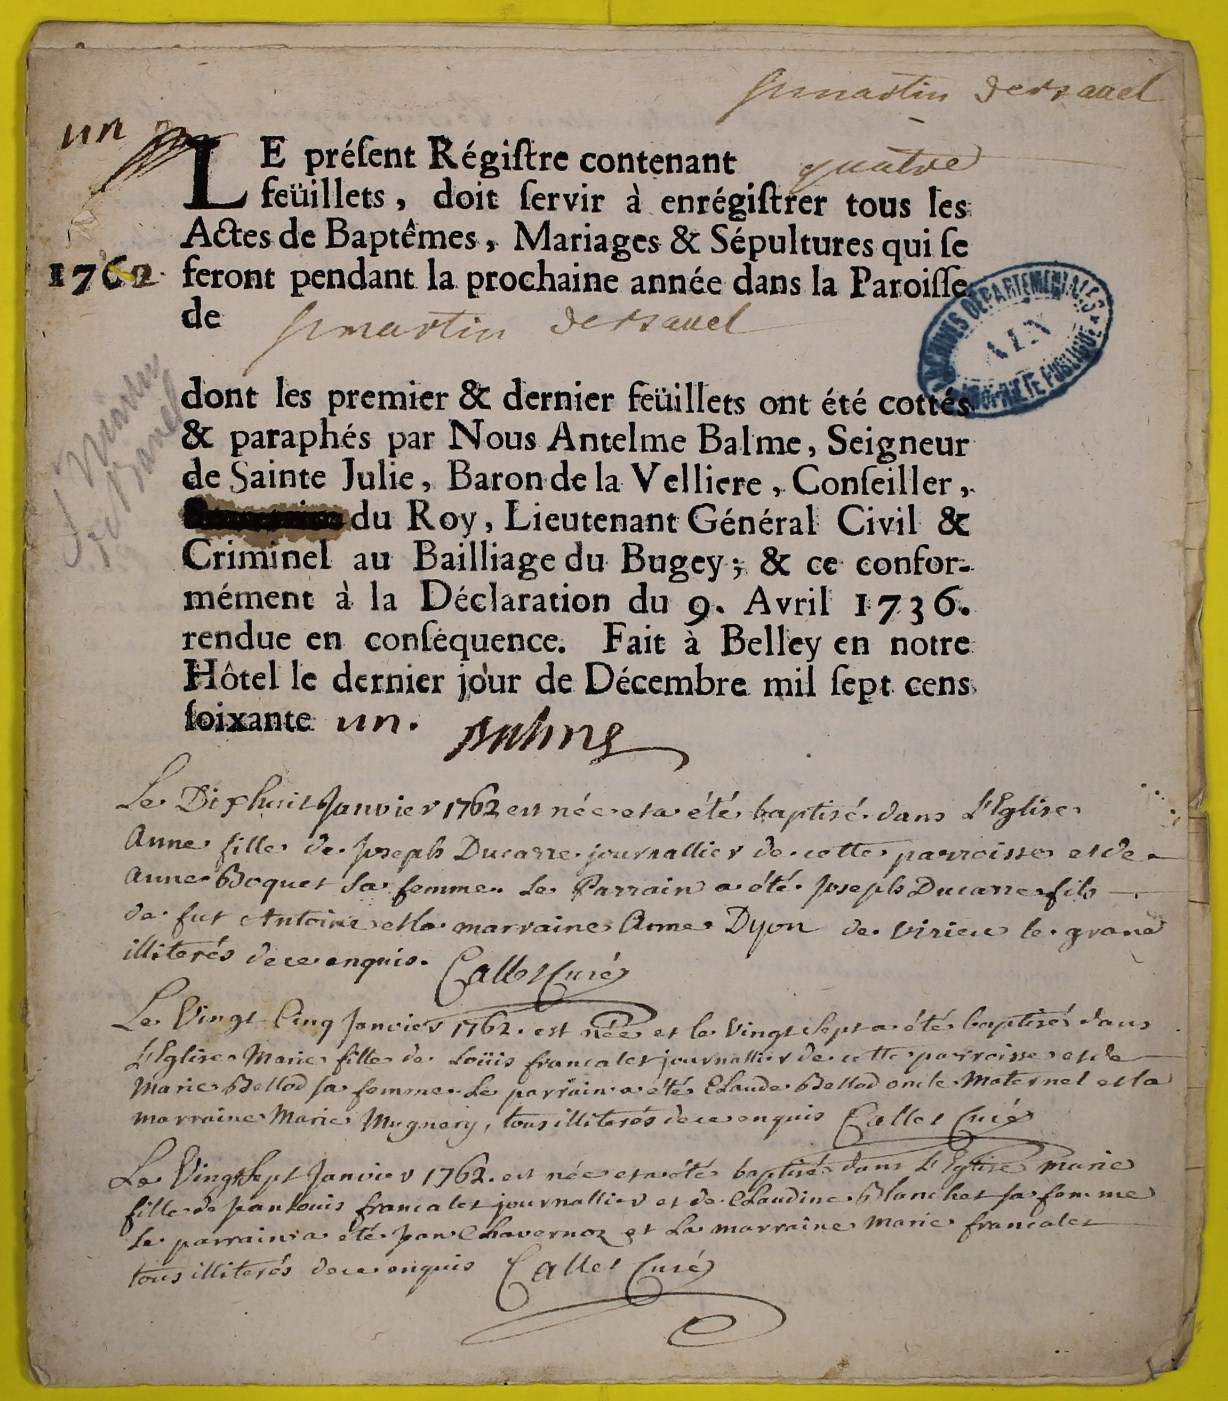 St martin de Bauel
un
LE préſent Régiſtre contenant quatre
feüillets, doit ſervir à enrégiſtrer tous les
Actes de Baptêmes, Mariages & Sépultures qui ſe
1762 feront pendant la prochaine année dans la Paroiſſe
de St martin de Bauel
ARCHIVES DÉPARTEMENTALES
AIN
PROPRIÉTÉ PUBLIQUE
dont les premier & dernier feüillets ont été cottés
& paraphés par Nous Antelme Balme, Seigneur
de Sainte Julie, Baron de la Velliere, Conſeiller,
du Roy, Lieutenant Général Civil &
Criminel au Bailliage du Bugey; & ce confor-
mément à la Déclaration du 9. Avril 1736.
rendue en conſéquence. Fait à Belley en notre
Hôtel le dernier jour de Décembre mil ſept cens
ſoixante un. Balme
St Martin
de Bavel
Le Dixhuit Janvier 1762 est née et a été baptisé dans l'Eglise
Anne fille de Joseph Ducarre journallier de cette parroisse et de
Anne Boquet sa femme. Le Parrain a été Joseph Ducarre fils
de fut Antoine et la marraine Anne Dyon de virieu le grand
illiterés de ce enquis. Callet Curé
Le Vingt Cinq Janvier 1762. est née et le Vingt Sept a été baptisés dans
l'Eglise Marie fille de Loüis francalet journallier de cette parroisse et de
Marie Bellod sa femme. Le parrain a été Claude Bellod oncle Maternel et la
marraine Marie Mugnery, tous illiterés de ce enquis Callet Curé
Le Vingt Sept Janvier 1762. est née et a été baptisé dans l'Eglise Marie
fille de Jean Louis francalet journallier et de Claudine Blanchet sa femme
Le parrain a été Jean Chavernoz et La marraine Marie francalet
tous illiterés de ce enquis Callet Curé